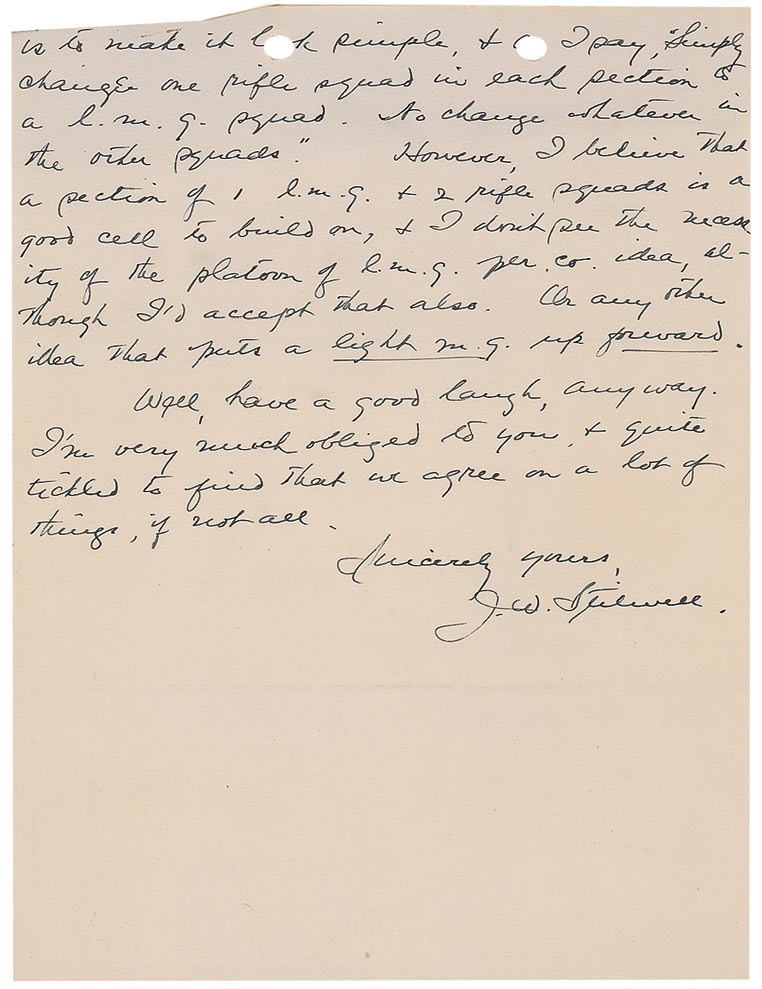 is to make it l k simple, & I say, "Simply
change one rifle squad in each section to
a l. m. g. squad. No change whatever in
the other squads." However, I believe that
a section of 1 l.m.g. & 2 rifle squads is a
good cell to build on, & I don't see the necess
ity of the platoon of l.m.g. per. co. idea, al-
though I'd accept that also. Or any other
idea that puts a light m.g. up forward.
Well, have a good laugh, anyway.
I'm very much obliged to you, & quite
tickled to find that we agree on a lot of
things, if not all.
Sincerely yours,
J. W. Stilwell.